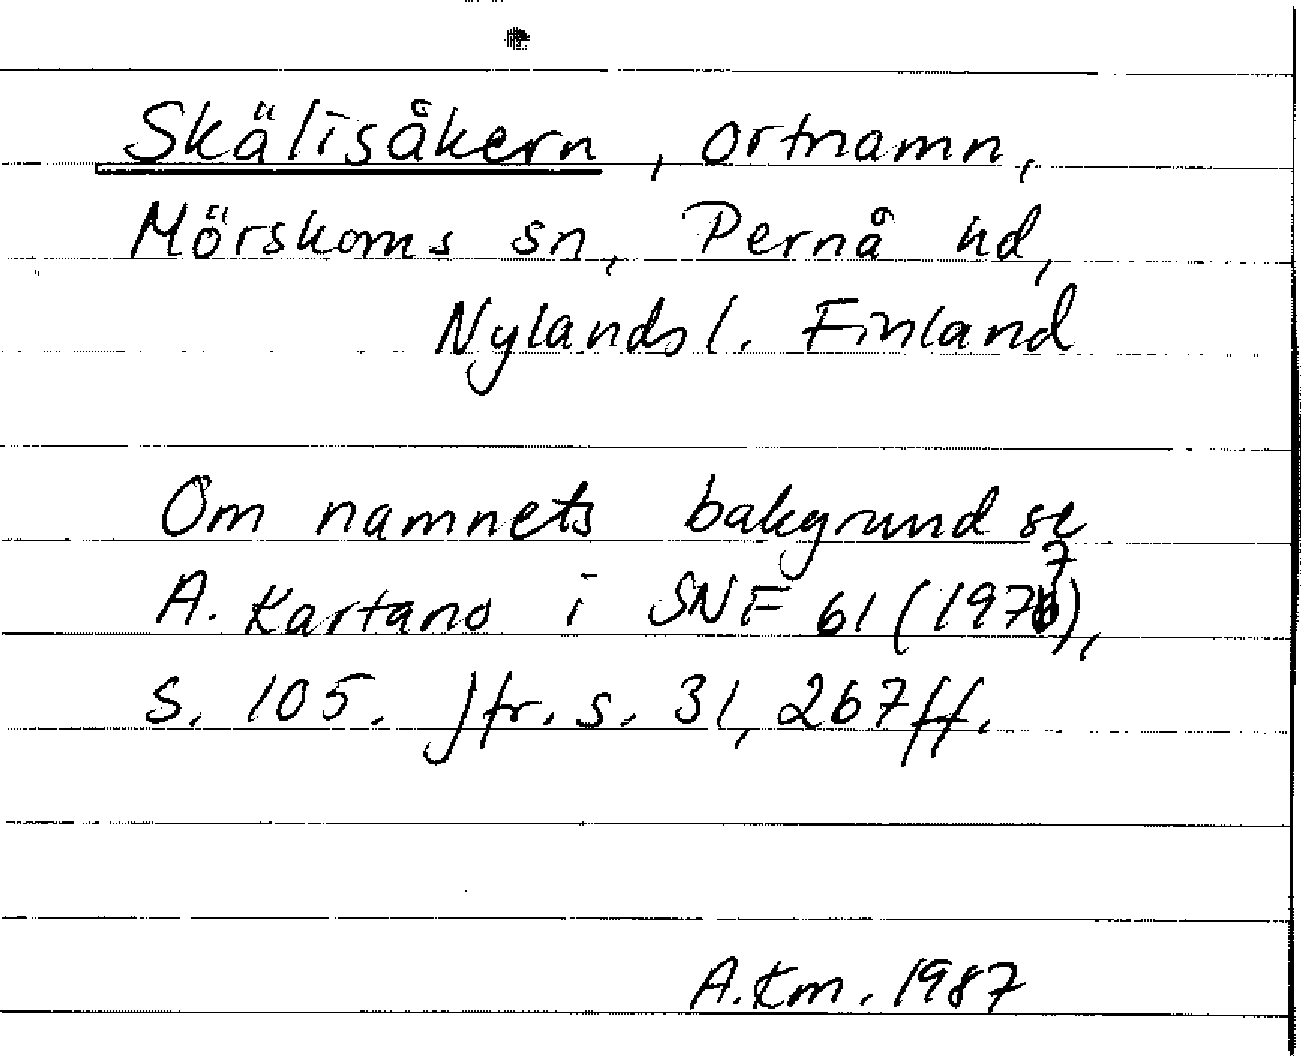 Skälisåkern, ortnamn,
Mörskoms sn, Pernå hd,
Nylands l. Finland
Om namnets bakgrund se
A. Kartano i SNF 61 (1977),
s. 105. Jfr. s. 31, 267 ff.
A.Km. 1987